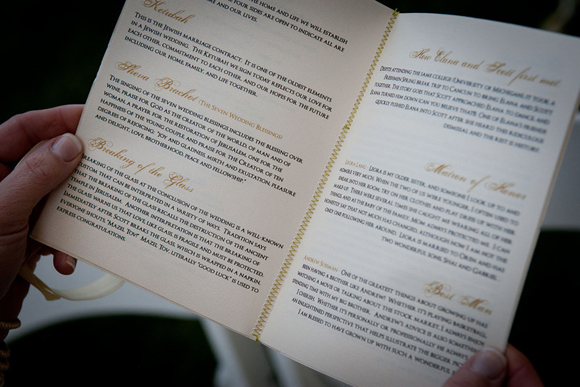 THE HOME AND LIFE WE WILL ESTABLISH
FOUR SIDES ARE OPEN TO INDICATE ALL ARE
AND OUR LIVES.
Ketubah
THIS IS THE JEWISH MARRIAGE CONTRACT. IT IS ONE OF THE OLDEST ELEMENTS
IN A JEWISH WEDDING. THE KETUBAH WE SIGN TODAY REFLECTS OUR LOVE FOR
EACH OTHER, COMMITMENT TO EACH OTHER, AND OUR HOPES FOR THE FUTURE
INCLUDING OUR HOME, FAMILY, AND LIFE TOGETHER.
Sheva Brachot (THE SEVEN WEDDING BLESSINGS)
THE SINGING OF THE SEVEN WEDDING BLESSINGS INCLUDES THE BLESSING OVER
WINE, PRAISE FOR GOD AS THE CREATOR OF THE WORLD, OF MAN AND OF
WOMAN, A PRAYER FOR THE RESTORATION OF JERUSALEM, ONE FOR THE
HAPPINESS OF THE YOUNG COUPLE, AND PRAISE FOR THE CREATOR OF TEN
DEGREES OF REJOICING, "JOY AND GLADNESS, MIRTH AND EXULTATION, PLEASURE
AND DELIGHT, LOVE BROTHERHOOD, PEACE AND FELLOWSHIP."
Breaking of the Glass
BREAKING OF THE GLASS AT THE CONCLUSION OF THE WEDDING IS A WELL-KNOWN
CUSTOM THAT CAN BE INTERPRETED IN A VARIETY OF WAYS. TRADITION SAYS
THE BREAKING OF THE GLASS RECALLS THE DESTRUCTION OF THE ANCIENT
TEMPLE IN JERUSALEM. ANOTHER INTERPRETATION IS THAT THE BREAKING OF
THE GLASS WARNS US THAT LOVE, LIKE GLASS, IS FRAGILE AND MUST BE PROTECTED.
IMMEDIATELY AFTER SCOTT BREAKS THE GLASS, WHICH IS WRAPPED IN A NAPKIN,
EVERYONE SHOUTS, "MAZEL TOV!" MAZEL TOV, LITERALLY "GOOD LUCK" IS USED TO
EXPRESS CONGRATULATIONS.
How Elana and Scott first met
DESPITE ATTENDING THE SAME COLLEGE (UNIVERSITY OF MICHIGAN), IT TOOK A
SPRING BREAK TRIP TO CANCUN TO BRING ELANA AND SCOTT
SCOTT APPROACHED ELANA TO DANCE, AND
YOU BELIEVE THAT! ONE OF ELANA'S FRIENDS
ELANA INTO SCOTT AFTER SHE HEARD THIS RIDICULOUS
DISMISSAL AND THE REST IS HISTORY.
Matron of Honor
LEORA IS MY OLDER SISTER, AND SOMEONE I LOOK UP TO AND
ADMIRE VERY MUCH. WHEN THE TWO OF US WERE YOUNGER, I OFTEN USED TO
INTO HER ROOM, TRY ON HER CLOTHES AND PLAY DRESS UP WITH HER
SHE CAUGHT ME WEARING ALL OF HER
BEING THE BABY OF THE FAMILY, LEORA ALWAYS PROTECTED ME. I CAN
HONESTLY SAY THAT NOT MUCH HAS CHANGED, ALTHOUGH NOW I AM NOT THE
ONLY ONE FOLLOWING HER AROUND. LEORA IS MARRIED TO OREN AND HAS
TWO WONDERFUL SONS, SHAI AND GABRIEL.
Best Man
ONE OF THE GREATEST THINGS ABOUT GROWING UP HAS
BEEN HAVING A BROTHER LIKE ANDREW! WHETHER IT'S PLAYING BASKETBALL,
WATCHING A MOVIE OR TALKING ABOUT THE STOCK MARKET, I ALWAYS ENJOY
SPENDING TIME WITH MY BIG BROTHER. ANDREW'S ADVICE IS ALSO SOMETHING
I CHERISH. WHETHER IT'S PERSONALLY OR PROFESSIONALLY HE ALWAYS
ENLIGHTENED PERSPECTIVE THAT HELPS ILLUSTRATE THE BIGGER
I AM BLESSED TO HAVE GROWN UP WITH SUCH A WONDERFUL